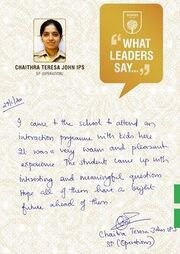 CHAITHRA TERESA JOHN IPS
SP (OPERATION)
"WHAT
LEADERS
SAY..."
I came to the school to attend an
interaction programme with kids here
It was a very warm and pleasant
experience The student came up with
interesting and meaningful questions
Hope all of them have a bright
future ahead of them.
Chaitra Teresa John IPS
SP (Operations)